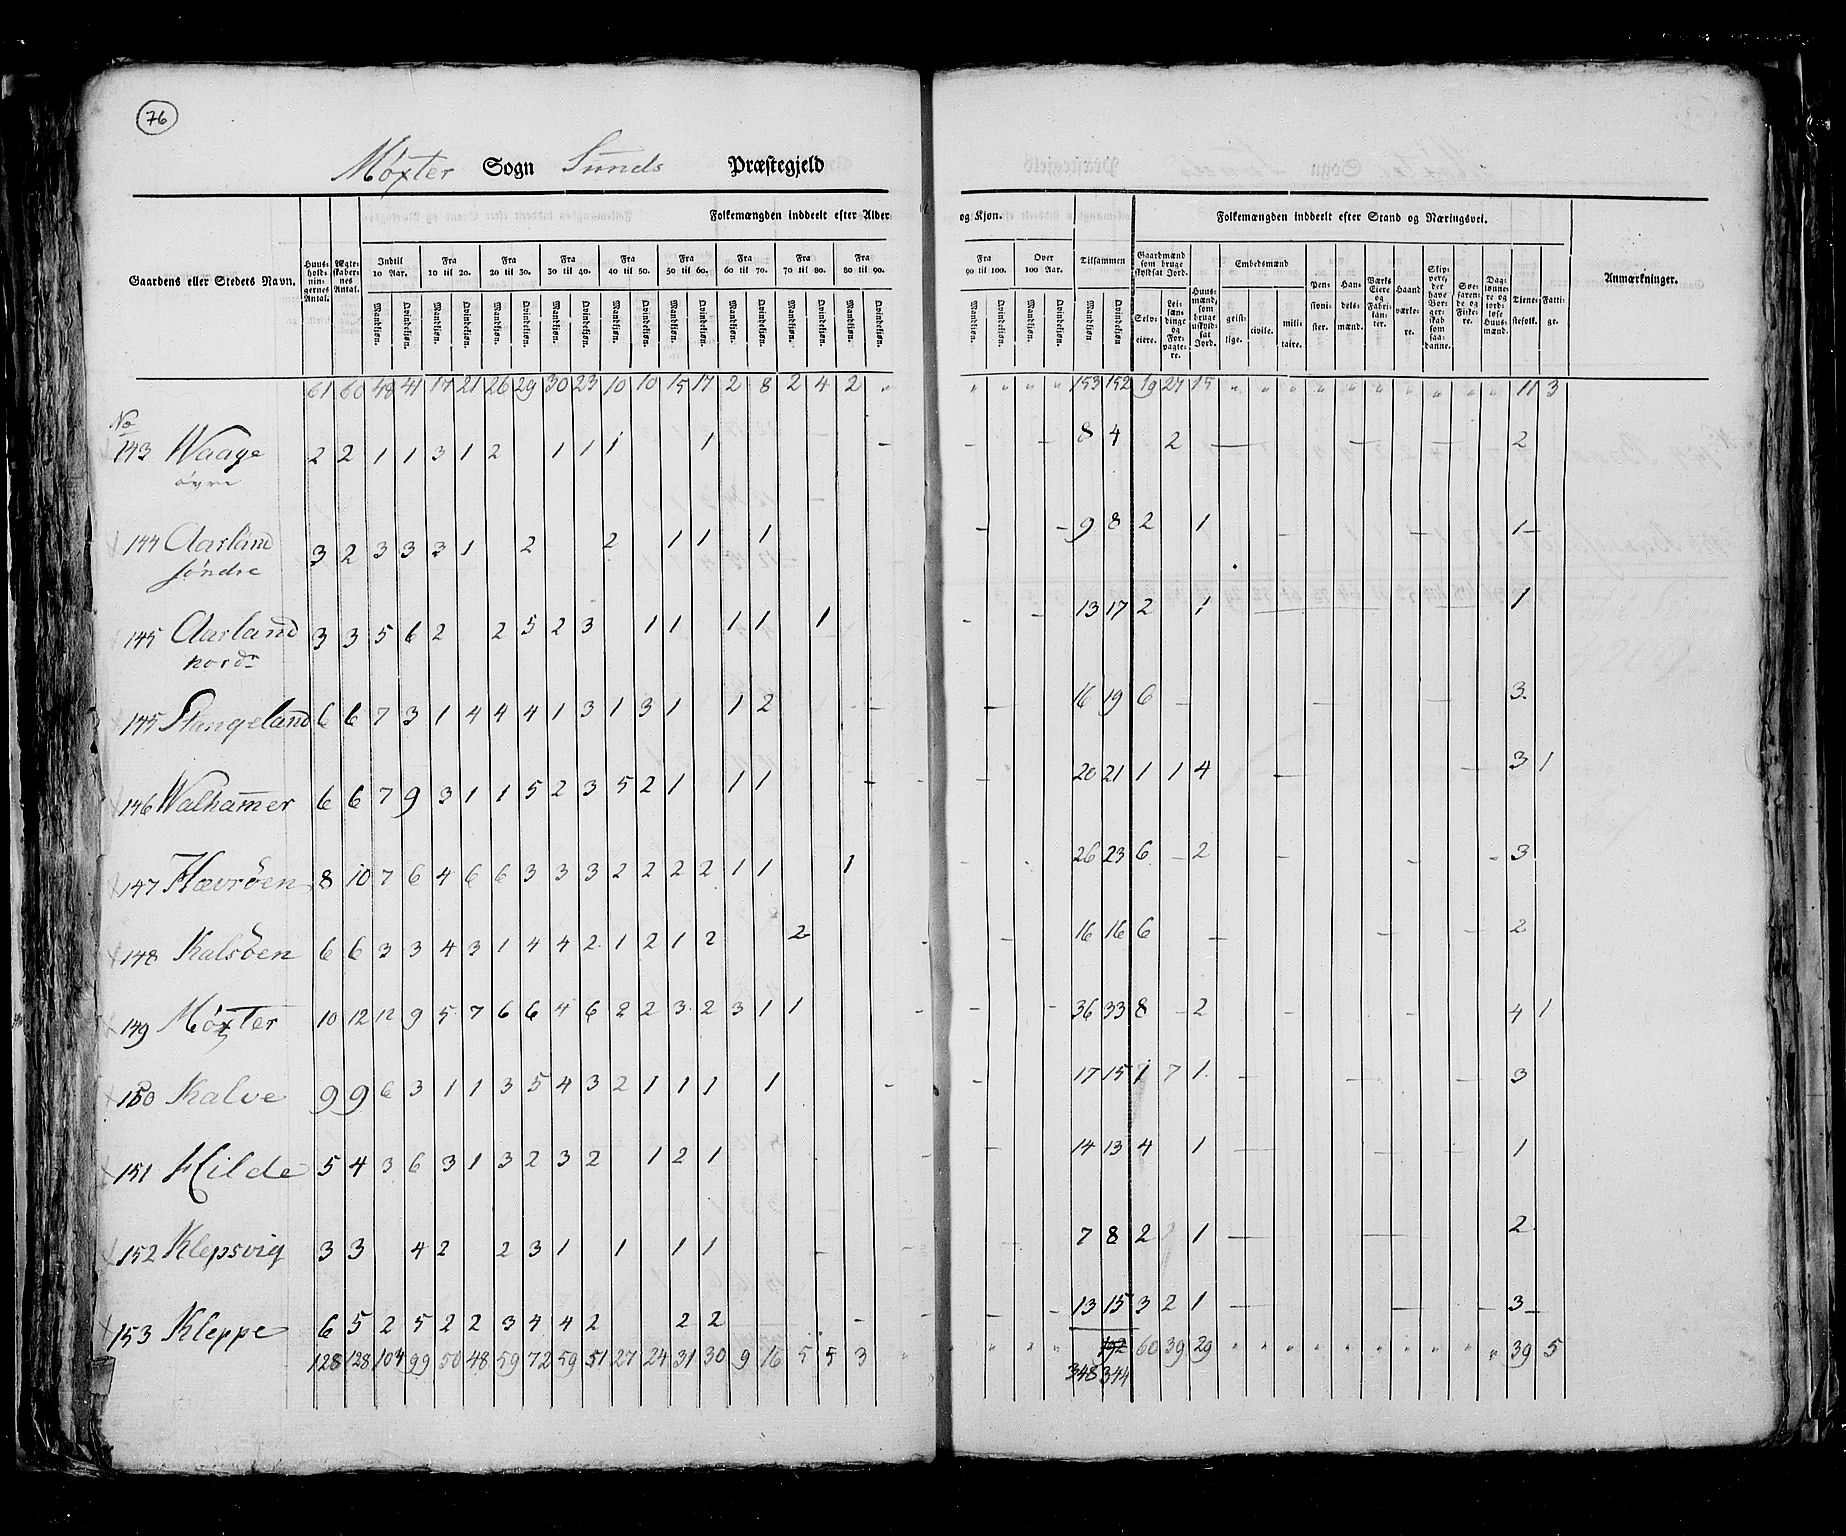 76
Møxter Sogn Sunds Præstegjeld
Folkemængden inddeelt efter Alder og Kjøn. Folkemængden inddeelt efter Stand og Næringsvei.
Gaardens eller Stedets Navn. Huusholdningernes Antal. Ægteskabernes Antal. Indtil 10 Aar. Fra 10 til 20. Fra 20 til 30. Fra 30 til 40. Fra 40 til 50. Fra 50 til 60. Fra 60 til 70. Fra 70 til 80. Fra 80 til 90. Fra 90 til 100. Over 100 Aar. Tilsammen Gaardmænd som bruge skyldsat Jord. Huusmænd, som bruge uskyldsat Jord. Embedsmænd Pensionister. Handelsmænd. Værks Eiere og Fabrikanter. Haandværkere. Skippere, der have Borgerskab som saadanne. Søefarende og Fiskere. Daglønnere og jordløse Huusmænd. Tienestefolk. Fattige. Anmærkninger.
Mandkjøn. Qvindekjøn. Mandkjøn. Qvindekjøn. Mandkjøn. Qvindekjøn. Mandkjøn. Qvindekjøn. Mandkjøn. Qvindekjøn. Mandkjøn. Qvindekjøn. Mandkjøn. Qvindekjøn. Mandkjøn. Qvindekjøn. Mandkjøn. Qvindekjøn. Mandkjøn. Qvindekjøn. Mandkjøn. Qvindekjøn. Mandkjøn. Qvindekjøn. Selveiere. Leilændinge og Forpagtere. geistlige. civile. militaire.
61 60 48 41 17 21 26 29 30 23 10 10 15 17 2 8 2 4 2 " " " " " 153 152 19 27 15 " " " " " " " " " " 11 3
No
143 Waage 2 2 1 1 3 1 2 1 1 1 1 - - - 8 4 2 - - - 2
øvre
144 Aarland 3 2 3 3 3 1 2 2 1 1 1 - - 9 8 2 1 - - - 1 -
søndre
145 Aarland 3 3 5 6 2 2 5 2 3 1 1 1 1 1 - - 13 17 2 1 - 1
nordr
145 Stangeland 6 6 7 3 1 4 4 4 1 3 1 3 1 1 2 - - - 16 19 6 - - - 3.
146 Walhammer 6 6 7 9 3 1 1 5 2 3 5 2 1 1 1 - - 20 21 1 1 4 - - 3 1
147 Hævrøen 8 10 7 6 4 6 6 3 3 3 2 2 2 2 1 1 1 - 26 23 6 - 2 - - - 3
148 Kalsøen 6 6 3 3 4 3 1 4 4 2 1 2 1 2 2 - - 16 16 6 - - - 2
149 Møxter 10 12 12 9 5 7 6 6 4 6 2 2 3 2 3 1 1 - - 36 33 8 - 2 - - 4 1
150 Kalve 9 9 6 3 1 1 3 5 4 3 2 1 1 1 1 - - 17 15 1 7 1 - - - 3
151 Hilde 5 4 3 6 3 1 3 2 3 2 1 2 1 - - 14 13 4 1 - - - 1
152 Klepsvig 3 3 4 2 2 3 1 1 1 1 - - 7 8 2 1 - - 2
153 Kleppe 6 5 2 5 2 2 3 4 4 2 2 2 - - - - 13 15 3 2 1 - - - 3 -
128 128 104 99 50 48 59 72 59 51 27 24 31 30 9 16 5 5 3 " " " " " 192 60 39 29 " " " " " " " " " " 39 5
348 344